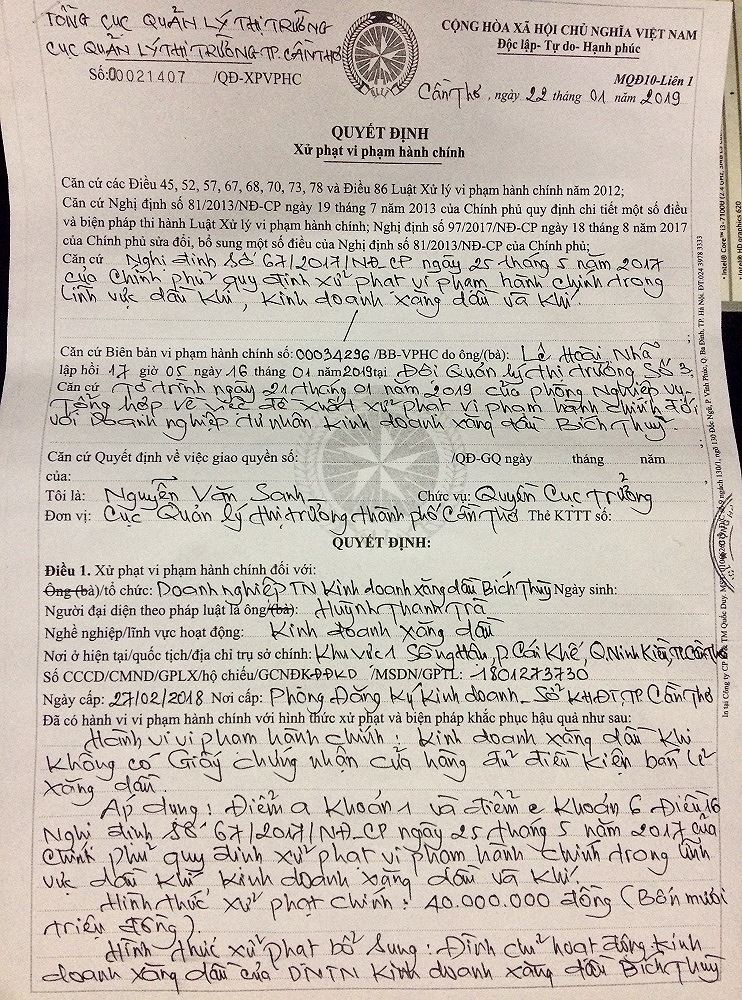 TỔNG CỤC QUẢN LÝ THỊ TRƯỜNG
CỤC QUẢN LÝ THỊ TRƯỜNG TP. CẦN THƠ
Số: 00021407 /QĐ-XPVPHC
CỘNG HÒA XÃ HỘI CHỦ NGHĨA VIỆT NAM
Độc lập- Tự do- Hạnh phúc
MQĐ10-Liên 1
Cần Thơ, ngày 22 tháng 01 năm 2019
QUYẾT ĐỊNH
Xử phạt vi phạm hành chính
Căn cứ các Điều 45, 52, 57, 67, 68, 70, 73, 78 và Điều 86 Luật Xử lý vi phạm hành chính năm 2012;
Căn cứ Nghị định số 81/2013/NĐ-CP ngày 19 tháng 7 năm 2013 của Chính phủ quy định chi tiết một số điều
và biện pháp thi hành Luật Xử lý vi phạm hành chính; Nghị định số 97/2017/NĐ-CP ngày 18 tháng 8 năm 2017
của Chính phủ sửa đổi, bổ sung một số điều của Nghị định số 81/2013/NĐ-CP của Chính phủ;
Căn cứ Nghị định số 67/2017/NĐ-CP ngày 25 tháng 5 năm 2017
của Chính phủ quy định xử phạt vi phạm hành chính trong
lĩnh vực dầu khí, kinh doanh xăng dầu và khí
Căn cứ Biên bản vi phạm hành chính số: 00034296 /BB-VPHC do ông/(bà): Lê Hoài Nhã
lập hồi 17 giờ 05 ngày 16 tháng 01 năm 2019 tại Đội Quản lý thị trường Số 3
Căn cứ Tờ trình ngày 21 tháng 01 năm 2019 của phòng Nghiệp vụ -
Tổng hợp về việc đề xuất xử phạt vi phạm hành chính đối
với Doanh nghiệp tư nhân Kinh doanh xăng dầu Bích Thuỷ.
Căn cứ Quyết định về việc giao quyền số: /QĐ-GQ ngày tháng năm
của:
Tôi là: Nguyễn Văn Sanh Chức vụ: Quyền Cục trưởng
Đơn vị: Cục Quản lý thị trường thành phố Cần Thơ Thẻ KTTT số:
QUYẾT ĐỊNH:
Điều 1. Xử phạt vi phạm hành chính đối với:
Ông (bà)/tổ chức: Doanh nghiệp TN Kinh doanh xăng dầu Bích Thuỷ Ngày sinh:
Người đại diện theo pháp luật là ông/(bà): Huỳnh Thanh Trà
Nghề nghiệp/lĩnh vực hoạt động: Kinh doanh xăng dầu
Nơi ở hiện tại/quốc tịch/địa chỉ trụ sở chính: Khu vực 1 Sông Hậu, P. Cái Khế, Q. Ninh Kiều, TP. Cần Thơ
Số CCCD/CMND/GPLX/hộ chiếu/GCNĐKDĐKD /MSDN/GPTL: 1801273730
Ngày cấp: 27/02/2018 Nơi cấp: Phòng Đăng Ký Kinh doanh - Sở KHĐT, TP. Cần Thơ
Đã có hành vi vi phạm hành chính với hình thức xử phạt và biện pháp khắc phục hậu quả như sau:
Hành vi vi phạm hành chính: Kinh doanh xăng dầu khi
không có Giấy chứng nhận cửa hàng đủ điều kiện bán lẻ
xăng dầu.
Áp dụng: Điểm a Khoản 1 và điểm e Khoản 6 Điều 16
Nghị định số 67/2017/NĐ-CP ngày 25 tháng 5 năm 2017 của
Chính phủ quy định xử phạt vi phạm hành chính trong lĩnh
vực dầu khí, kinh doanh xăng dầu và khí.
Hình thức xử phạt chính: 40.000.000 đồng (Bốn mươi
triệu đồng).
Hình thức xử phạt bổ sung: Đình chỉ hoạt động kinh
doanh xăng dầu của DNTN Kinh doanh xăng dầu Bích Thuỷ